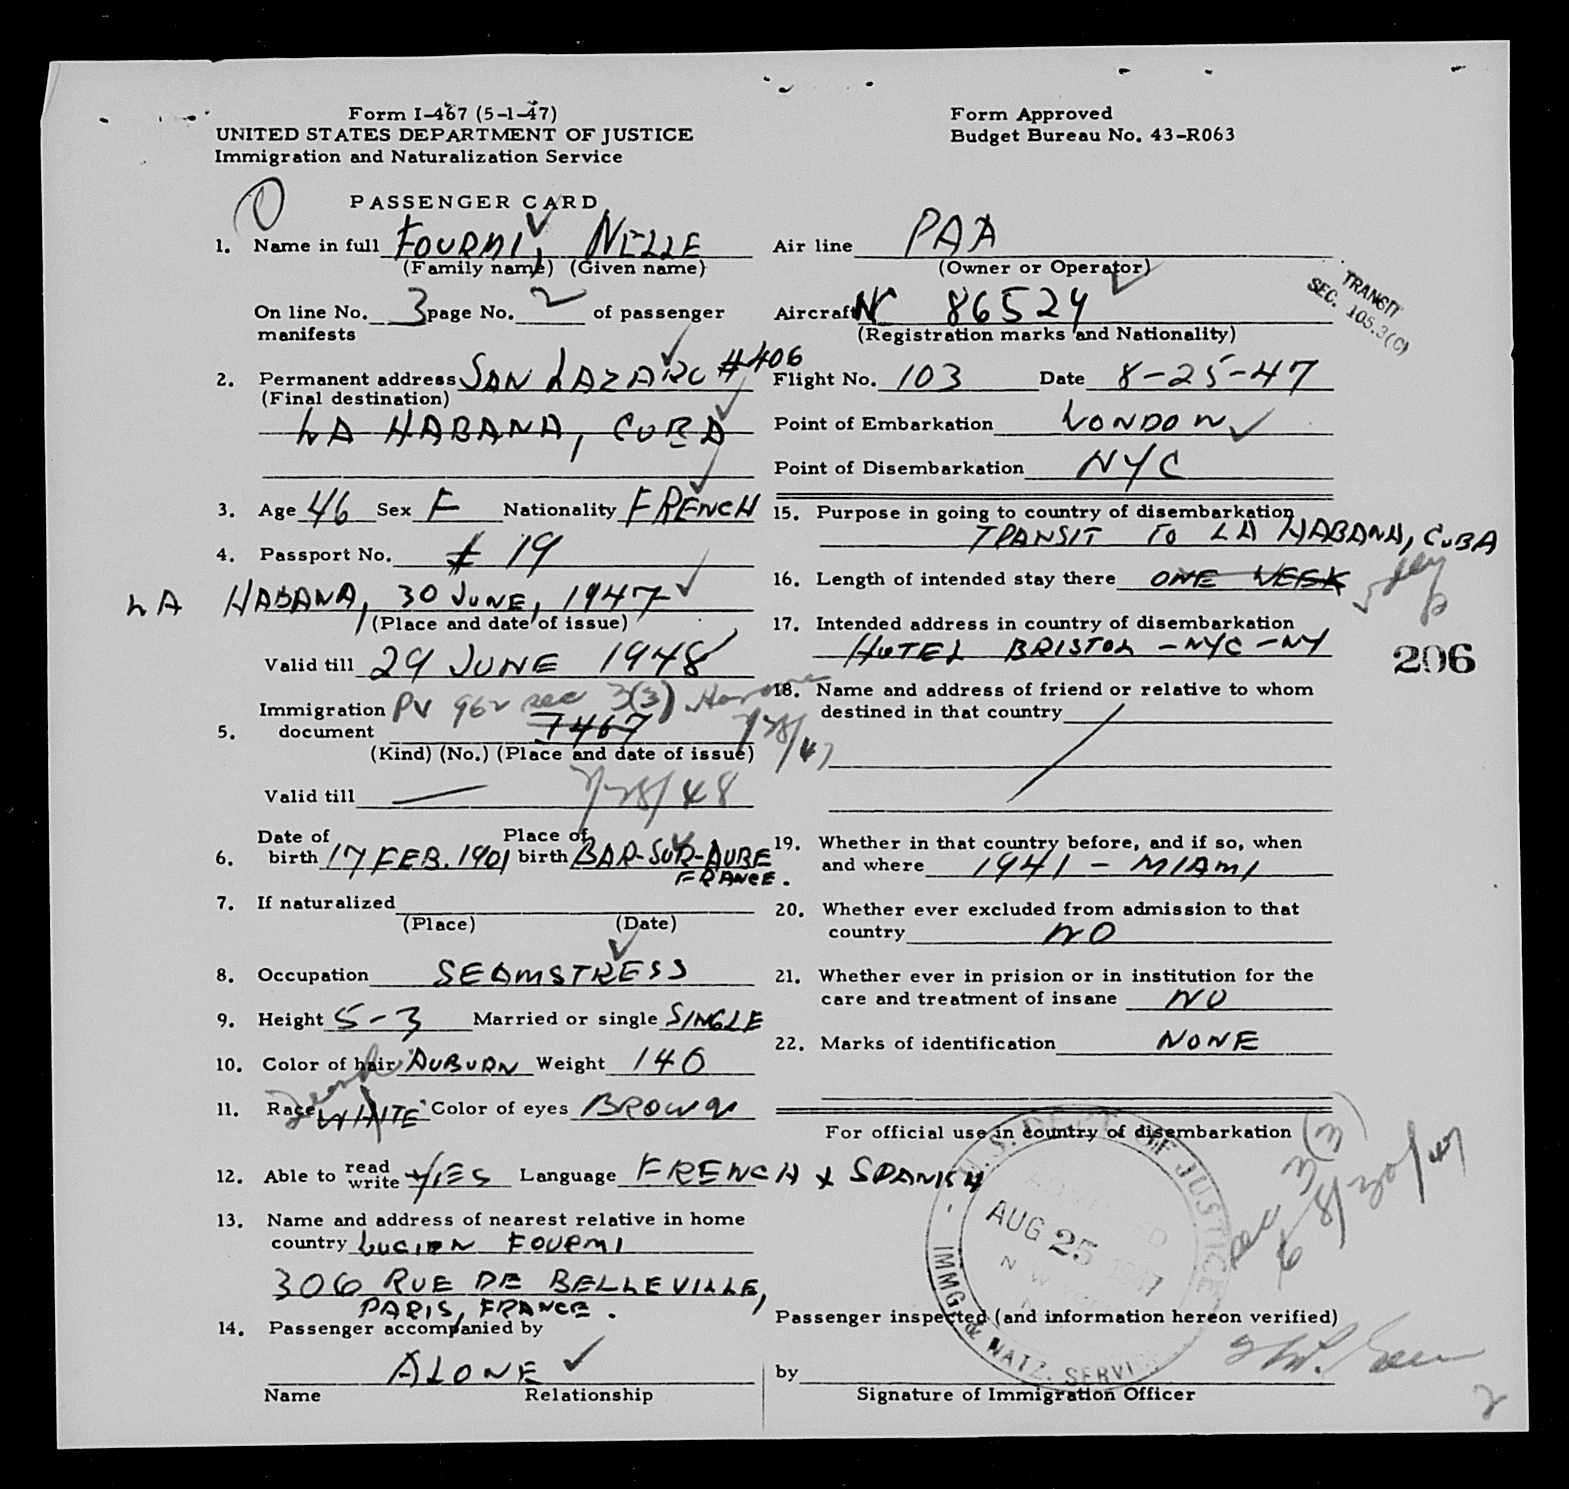 Form I-467 (5-1-47)
UNITED STATES DEPARTMENT OF JUSTICE
Immigration and Naturalization Service
Form Approved
Budget Bureau No. 43-R063
PASSENGER CARD
1. Name in full FOURMI, NELLE
(Family name) (Given name)
On line No. 3 page No. 2 of passenger
manifests
2. Permanent address SAN LAZARO #406
(Final destination)
LA HABANA, CUBA
3. Age 46 Sex F Nationality FRENCH
4. Passport No. # 19
LA HABANA, 30 JUNE, 1947
(Place and date of issue)
Valid till 29 JUNE 1948
Immigration PV 962 sec 3(3)
5. document 7467 7/28/47
(Kind) (No.) (Place and date of issue)
Valid till — 7/28/48
Date of Place of
6. birth 17 FEB. 1901 birth BAR-SUR-AUBE
FRANCE.
7. If naturalized
(Place) (Date)
8. Occupation SEAMSTRESS
9. Height 5-3 Married or single SINGLE
10. Color of hair AUBURN Weight 140
11. Race WHITE Color of eyes BROWN
12. Able to read write YES Language FRENCH & SPANISH
13. Name and address of nearest relative in home
country LUCIEN FOURMI
306 RUE DE BELLEVILLE,
PARIS, FRANCE.
14. Passenger accompanied by
ALONE
Name Relationship
Air line PAA
(Owner or Operator)
Aircraft NC 86524
(Registration marks and Nationality)
TRANSIT
SEC. 105.3(C)
Flight No. 103 Date 8-25-47
Point of Embarkation LONDON
Point of Disembarkation NYC
15. Purpose in going to country of disembarkation
TRANSIT TO LA HABANA, CUBA
16. Length of intended stay there ONE WEEK
17. Intended address in country of disembarkation
HOTEL BRISTOL - NYC - NY
206
18. Name and address of friend or relative to whom
destined in that country
19. Whether in that country before, and if so, when
and where 1941 - MIAMI
20. Whether ever excluded from admission to that
country NO
21. Whether ever in prision or in institution for the
care and treatment of insane NO
22. Marks of identification NONE
For official use in country of disembarkation
U.S. DEPT. OF JUSTICE
AUG 25 1947
IMMG. & NATZ. SERVICE
Passenger inspected (and information hereon verified)
by
Signature of Immigration Officer
2